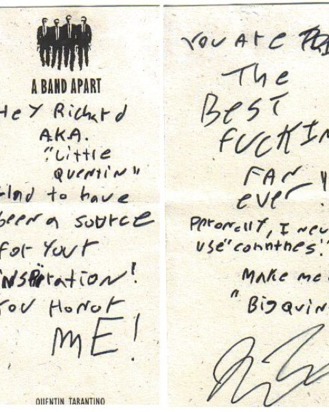 A BAND APART
Hey Richard
A.K.A.
"Little
Quentin"
lad to have
been a source
for your
inspiration!
You Honor
ME!
QUENTIN TARANTINO
You are
The
BEST
FUCKIN
FAN
ever!
Peronelly, I nev
use "conmhes."
Make me
"Big Quin